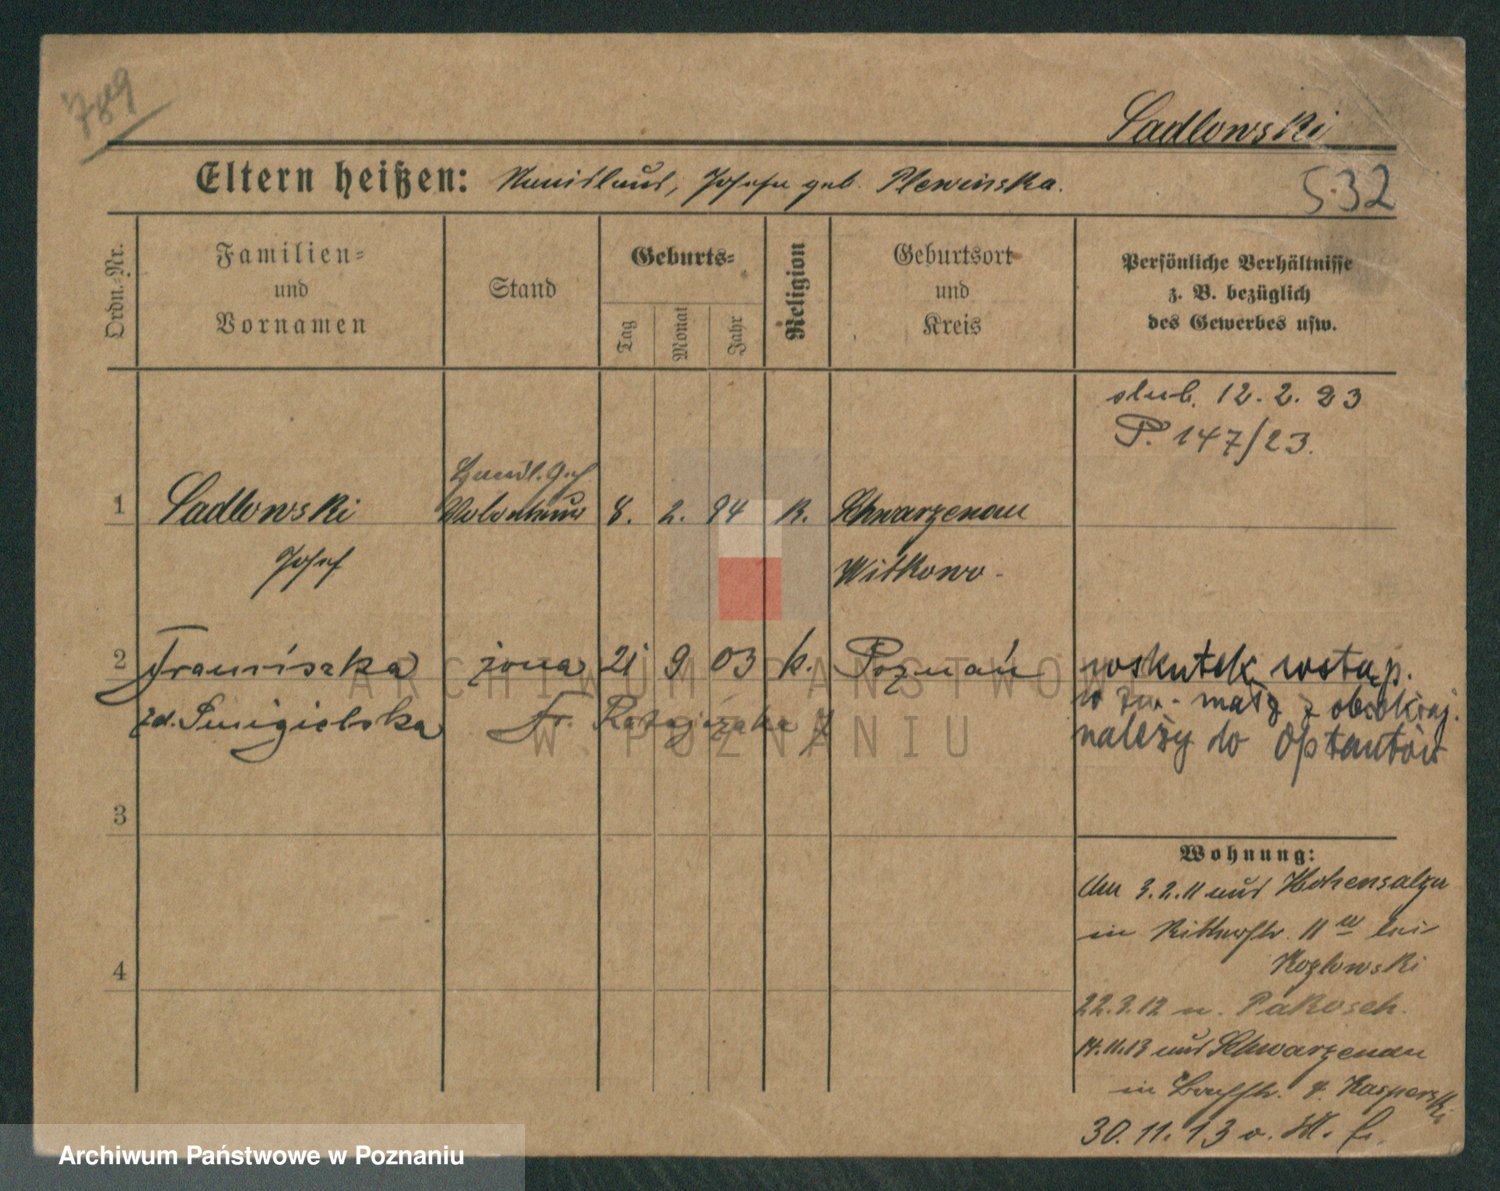 789
Sadlowski
Eltern heißen: Stanislaus, Josefa geb. Plewinska.
532
Ordn.-Nr.
Familien-
und
Vornamen
Stand
Geburts-
Tag
Monat
Jahr
Religion
Geburtsort
und
Kreis
Persönliche Verhältnisse
z. B. bezüglich
des Gewerbes usw.
slub. 12. 2. 23
P. 147/23.
1 Sadlowski
Handl. Geh
8. 2. 94 K. Schwarzenau
Josef
Witkowo
2 Franciszka żona 21 9 03 k. Poznań
zd. Smigielska
Fr. Ratajczaka
wskutek wstąp.
w zw. małż z obcokraj.
należy do Optantów
3
4
Wohnung:
3.2.11 aus Hohensalza
in Ritterstr. 11 bei
Kozlowski
22.3.12 n. Pakosch.
14.11.13 aus Schwarzenau
in Kasperski
30.11.13
ARCHIWUM PAŃSTWOWE
W POZNANIU
Archiwum Państwowe w Poznaniu